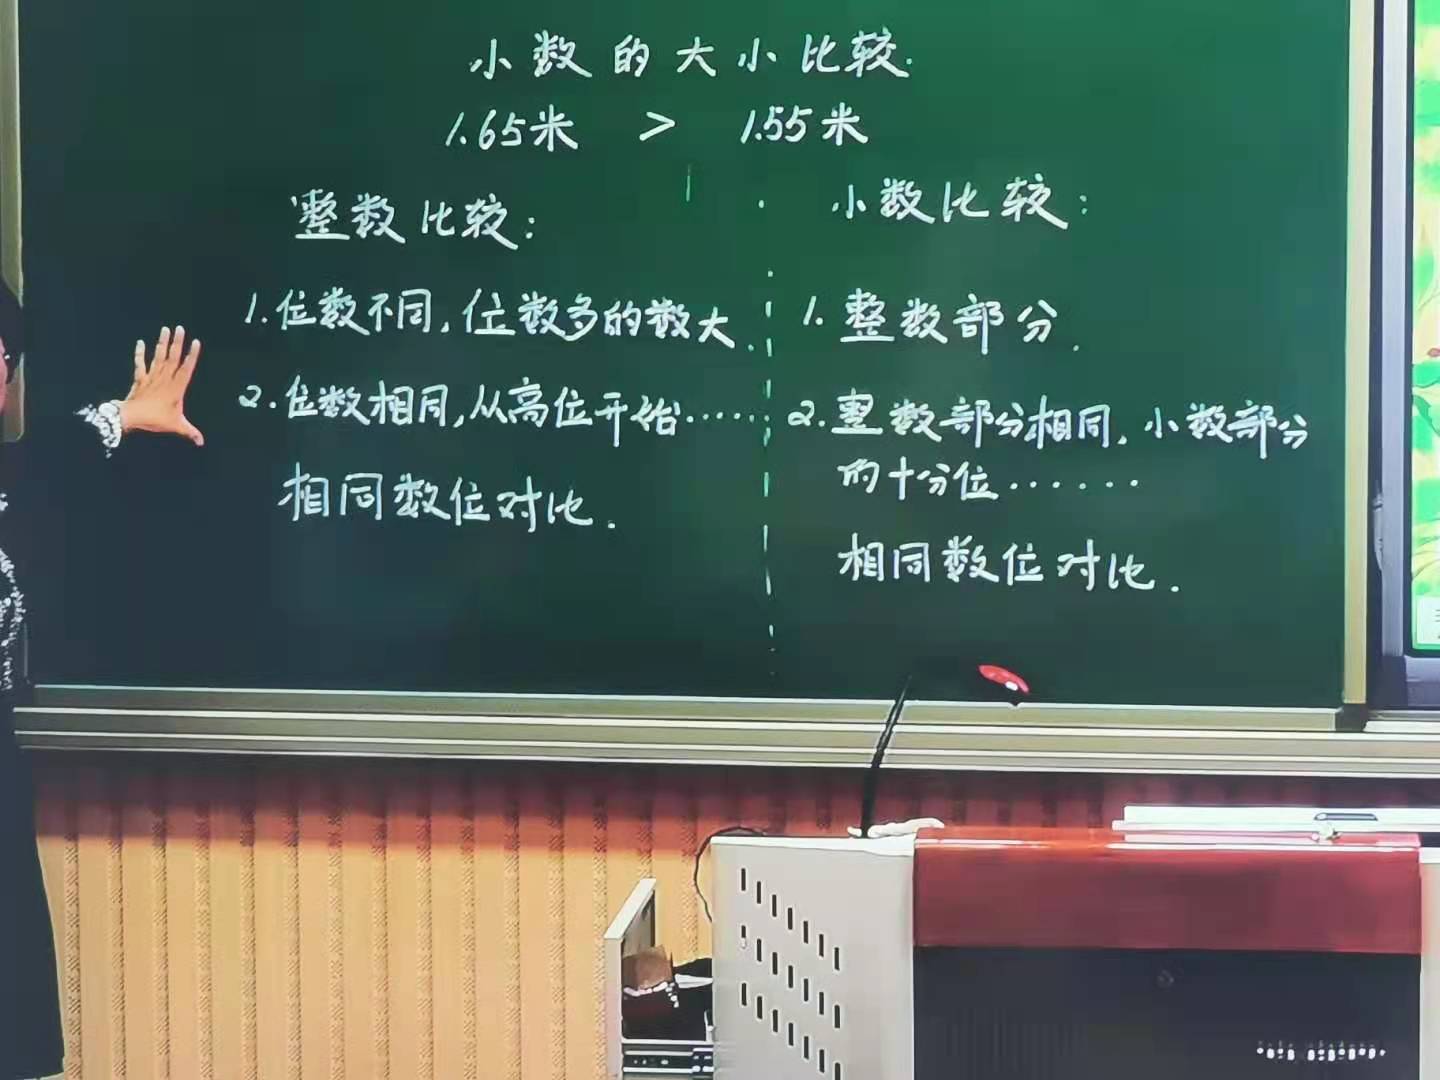 小数的大小比较.
1.65米 > 1.55米
整数比较:
1.位数不同,位数多的数大.
2.位数相同,从高位开始……
相同数位对比.
小数比较:
1.整数部分.
2.整数部分相同,小数部分
的十分位……
相同数位对比.